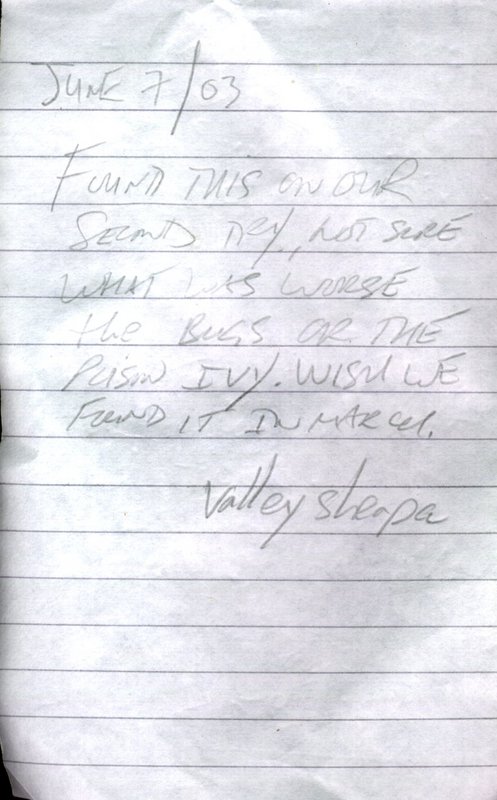 JUNE 7/03
FOUND THIS ON OUR
SECOND TRY, NOT SURE
WHAT WAS WORSE
the BUGS OR THE
POISON IVY. WISH WE
FOUND IT IN MARCH.
Valley Sherpa